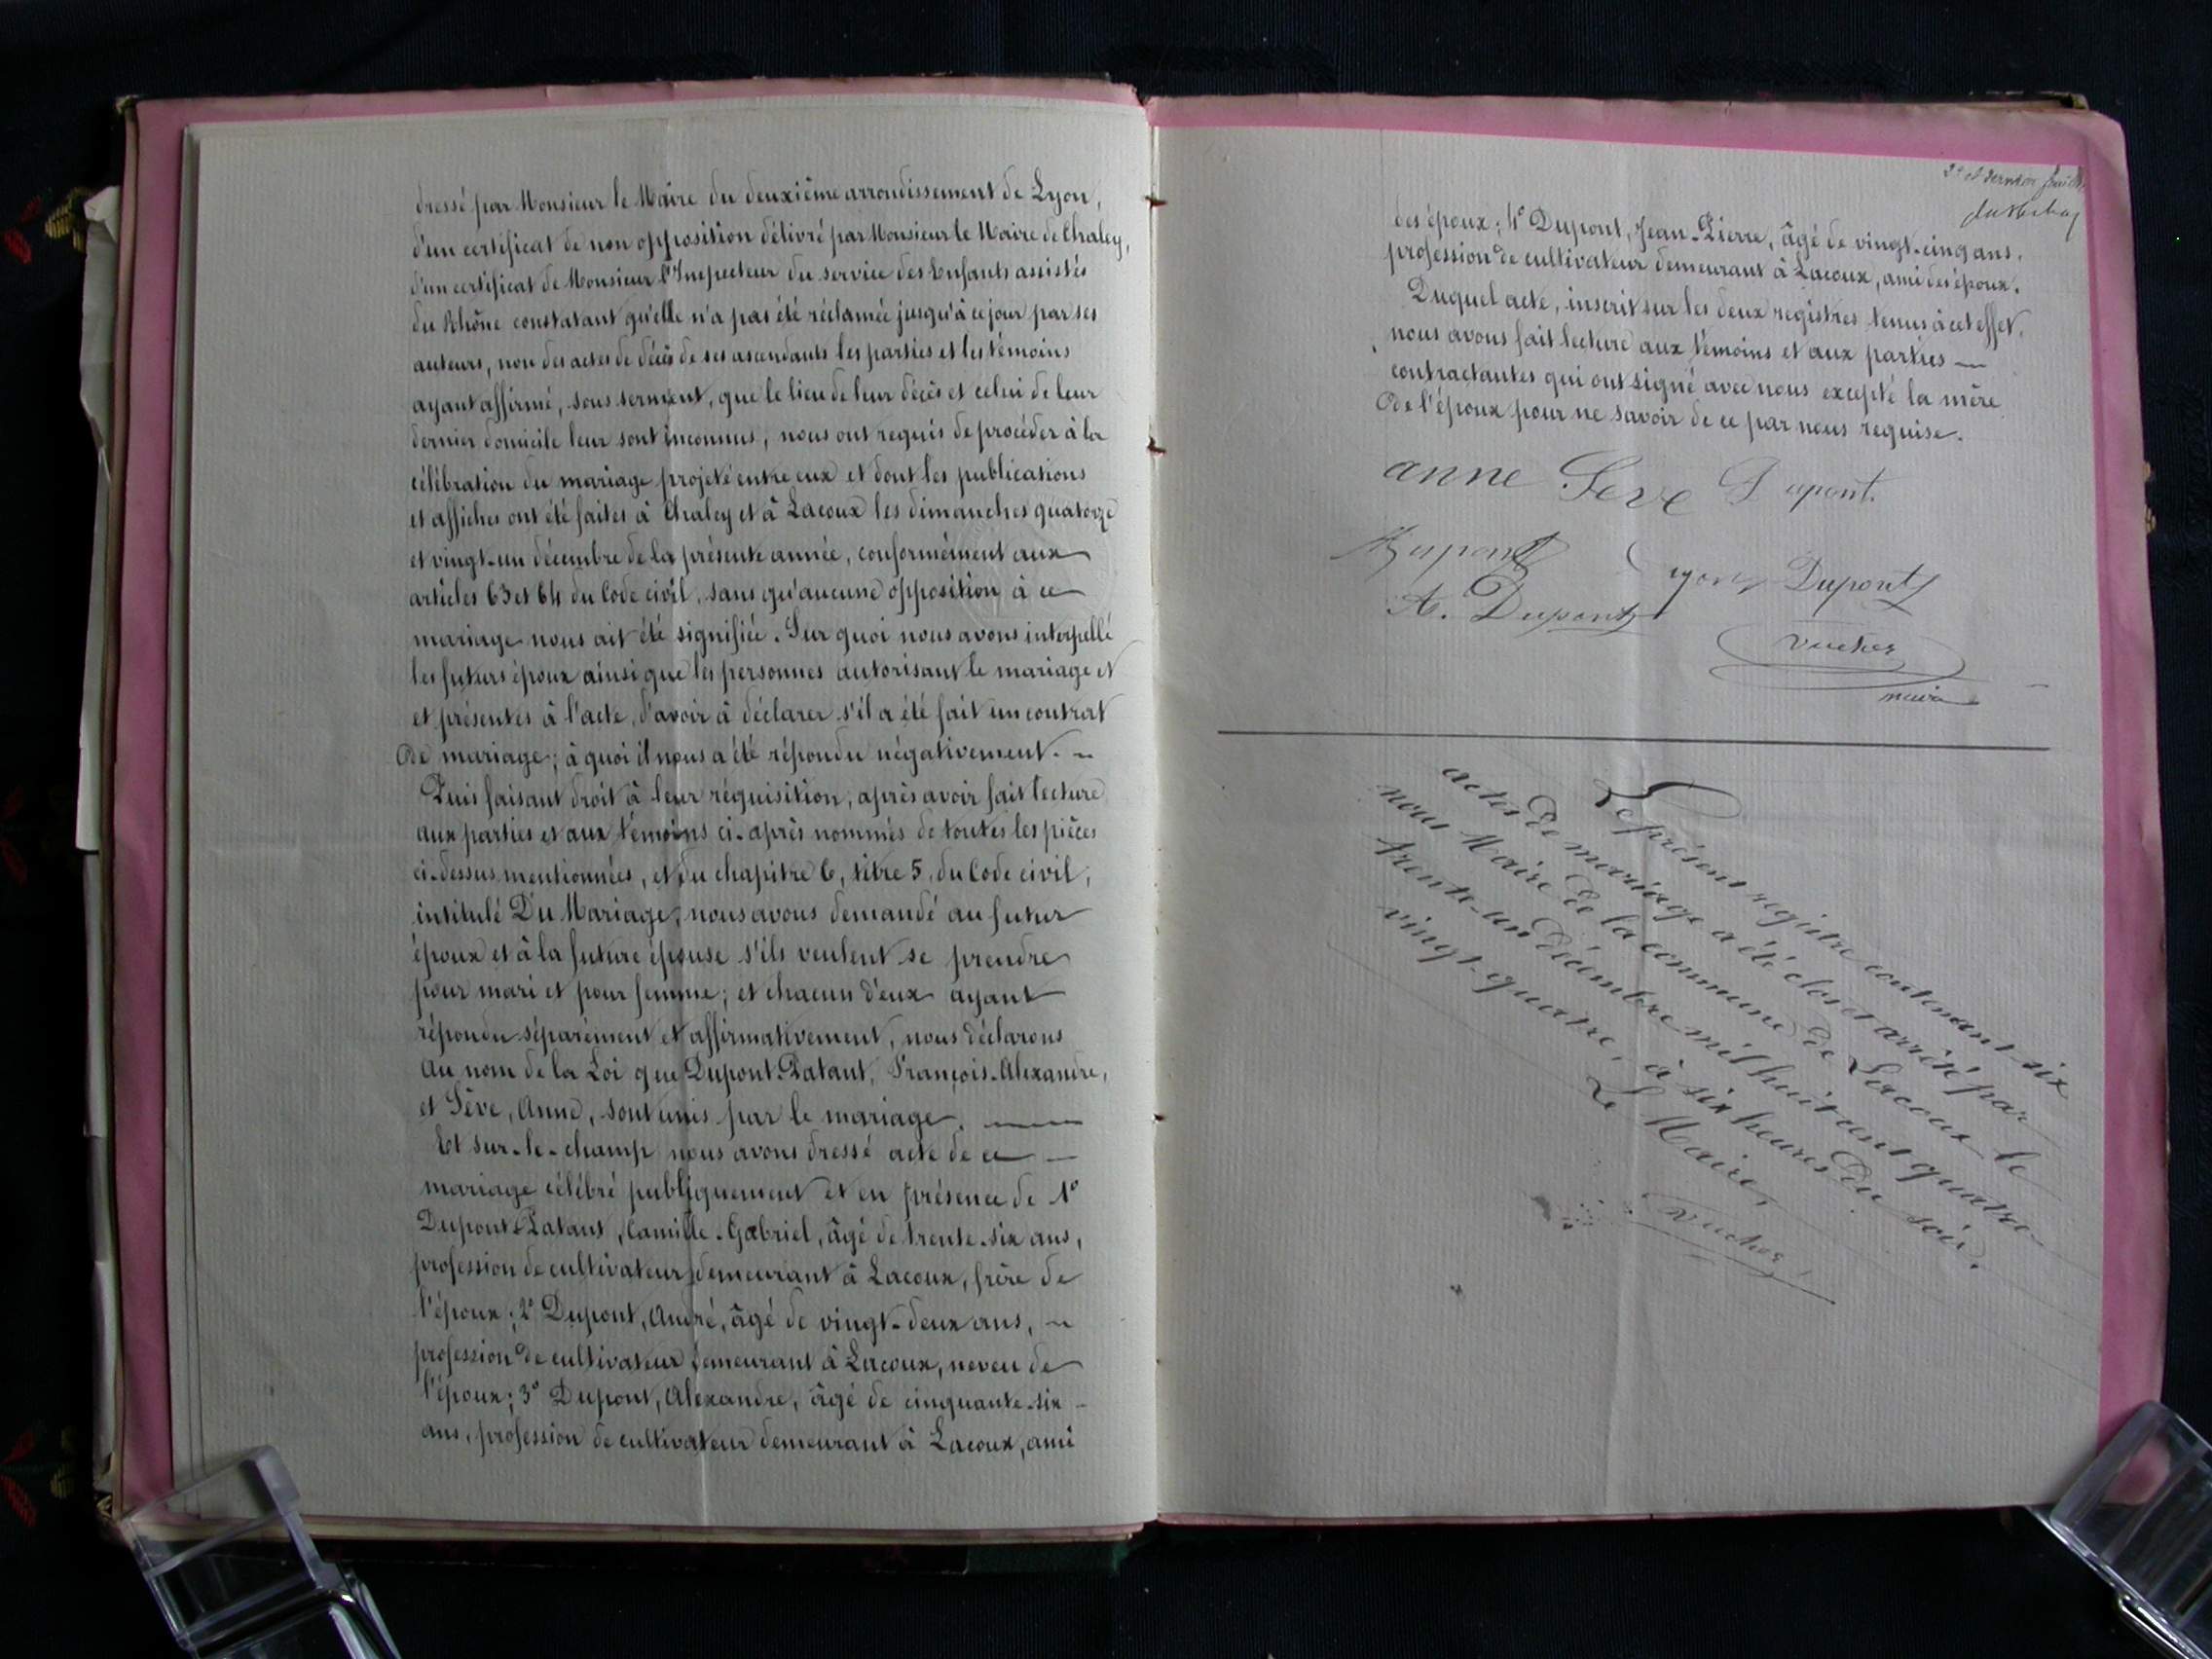 dressé par Monsieur le Maire du deuxième arrondissement de Lyon,
d'un certificat de non opposition délivré par Monsieur le Maire de Chaley,
d'un certificat de Monsieur l'Inspecteur du service des Enfants assistés
du Rhône constatant qu'elle n'a pas été réclamée jusqu'à ce jour par ses
auteurs, non des actes de décès de ses ascendants les parties et les témoins
ayant affirmé, sous serment, que le lieu de leur décès et celui de leur
dernier domicile leur sont inconnus, nous ont requis de procéder à la
célébration du mariage projeté entre eux et dont les publications
et affiches ont été faites à Chaley et à Lacoux les dimanches quatorze
et vingt-un décembre de la présente année, conformément aux
articles 63 et 64 du Code civil, sans qu'aucune opposition à ce
mariage nous ait été signifiée. Sur quoi nous avons interpellé
les futurs époux ainsi que les personnes autorisant le mariage et
et présentes à l'acte, d'avoir à déclarer s'il a été fait un contrat
de mariage; à quoi il nous a été répondu négativement.
Puis faisant droit à leur réquisition, après avoir fait lecture
aux parties et aux témoins ci-après nommés de toutes les pièces
ci-dessus mentionnées, et du chapitre 6, titre 5, du Code civil,
intitulé Du Mariage, nous avons demandé au futur
époux et à la future épouse s'ils veulent se prendre
pour mari et pour femme; et chacun d'eux ayant
répondu séparément et affirmativement, nous déclarons
au nom de la Loi que Dupont-Patant, François-Alexandre,
et Sève, Anne, sont unis par le mariage.
Et sur-le-champ nous avons dressé acte de ce
mariage célébré publiquement et en présence de 1°
Dupont-Patant, Camille-Gabriel, âgé de trente-six ans,
profession de cultivateur demeurant à Lacoux, frère de
l'époux; 2° Dupont, André, âgé de vingt-deux ans,
profession de cultivateur demeurant à Lacoux, neveu de
l'époux; 3° Dupont, Alexandre, âgé de cinquante-six
ans, profession de cultivateur demeurant à Lacoux, ami
2e et dernier
des époux; 4° Dupont, Jean-Pierre, âgé de vingt-cinq ans,
profession de cultivateur demeurant à Lacoux, ami des époux.
Duquel acte, inscrit sur les deux registres tenus à cet effet,
nous avons fait lecture aux témoins et aux parties
contractantes qui ont signé avec nous excepté la mère
de l'époux pour ne savoir de ce par nous requise.
anne Seve Dupont
Dupont Dupont
A. Dupont
Vucher
maire
Le présent registre contenant six
actes de mariage a été clos et arrêté par
nous Maire de la commune de Lacoux le
trente-un Décembre mil huit cent quatre-
vingt-quatre, à six heures du soir.
Le Maire,
Vucher